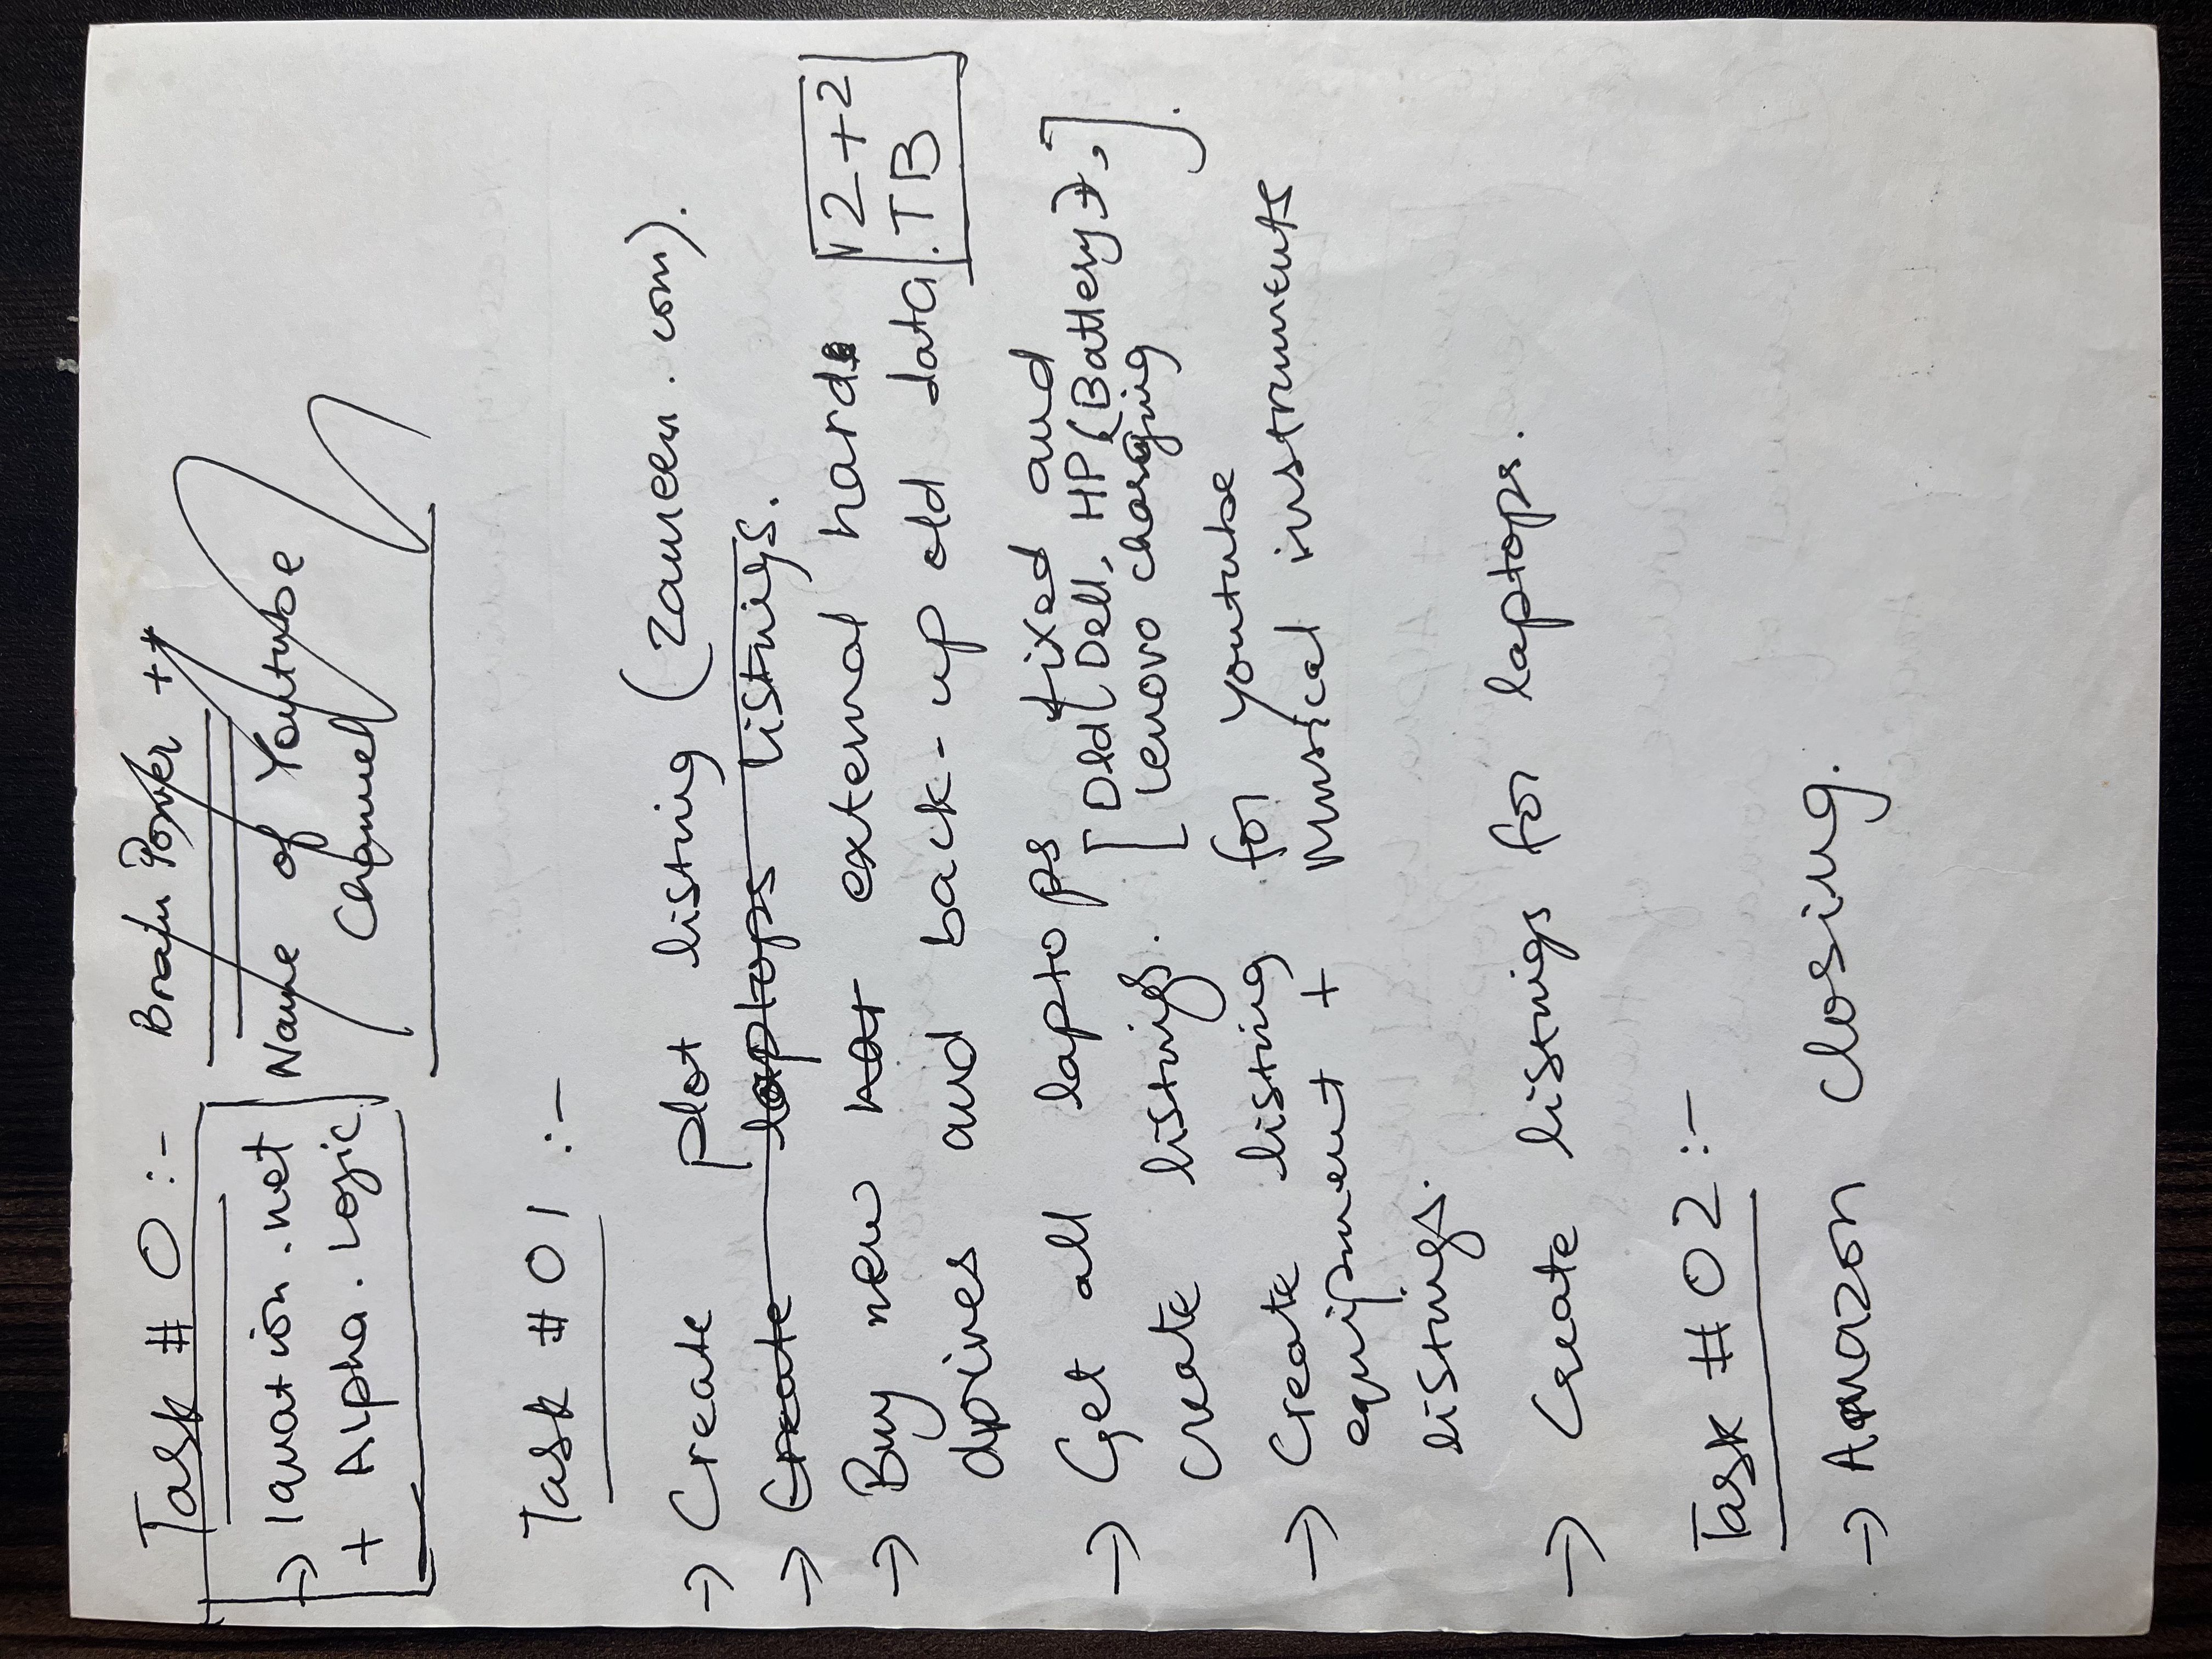 Task # 0 :-
Brain Power ++
→ iquation.net
+ Alpha.Logic
Name of Youtube
Channel
Task # 01 :-
→ Create plot listing (zameen.com).
→ Create laptops listings.
→ Buy new external hard
drives and back-up old data.
2+2
TB
→ Get all laptops fixed and
create listings. [Old(Dell, HP(Battery),
Lenovo charging].
→ Create listing for youtube
equipment + Musical instruments
listings.
→ Create listings for laptops.
Task # 02 :-
→ Amazon closing.